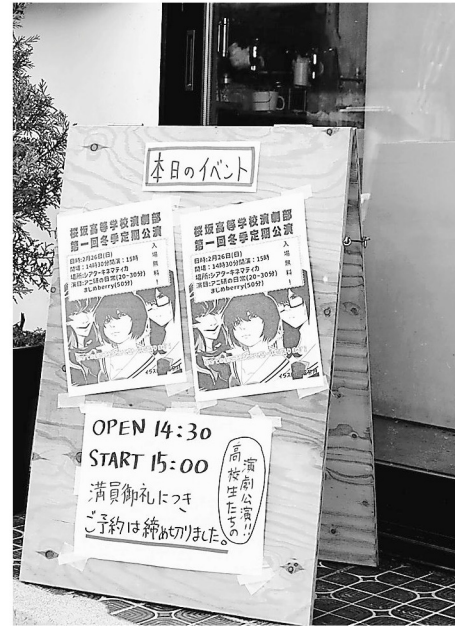 本日のイベント
桜坂高等学校演劇部
第一回冬季定期公演
日時:2月26日(日)
開場:14時30分開演:15時
場所:シアターキネマティカ
演目:アニ研の日常(20-30分)
まじめberry(50分)
入場無料!
桜坂高等学校演劇部
第一回冬季定期公演
日時:2月26日(日)
開場:14時30分開演:15時
場所:シアターキネマティカ
演目:アニ研の日常(20-30分)
まじめberry(50分)
入場無料!
OPEN 14:30
START 15:00
満員御礼につき
ご予約は締め切りました。
高校生たちの
演劇公演!!